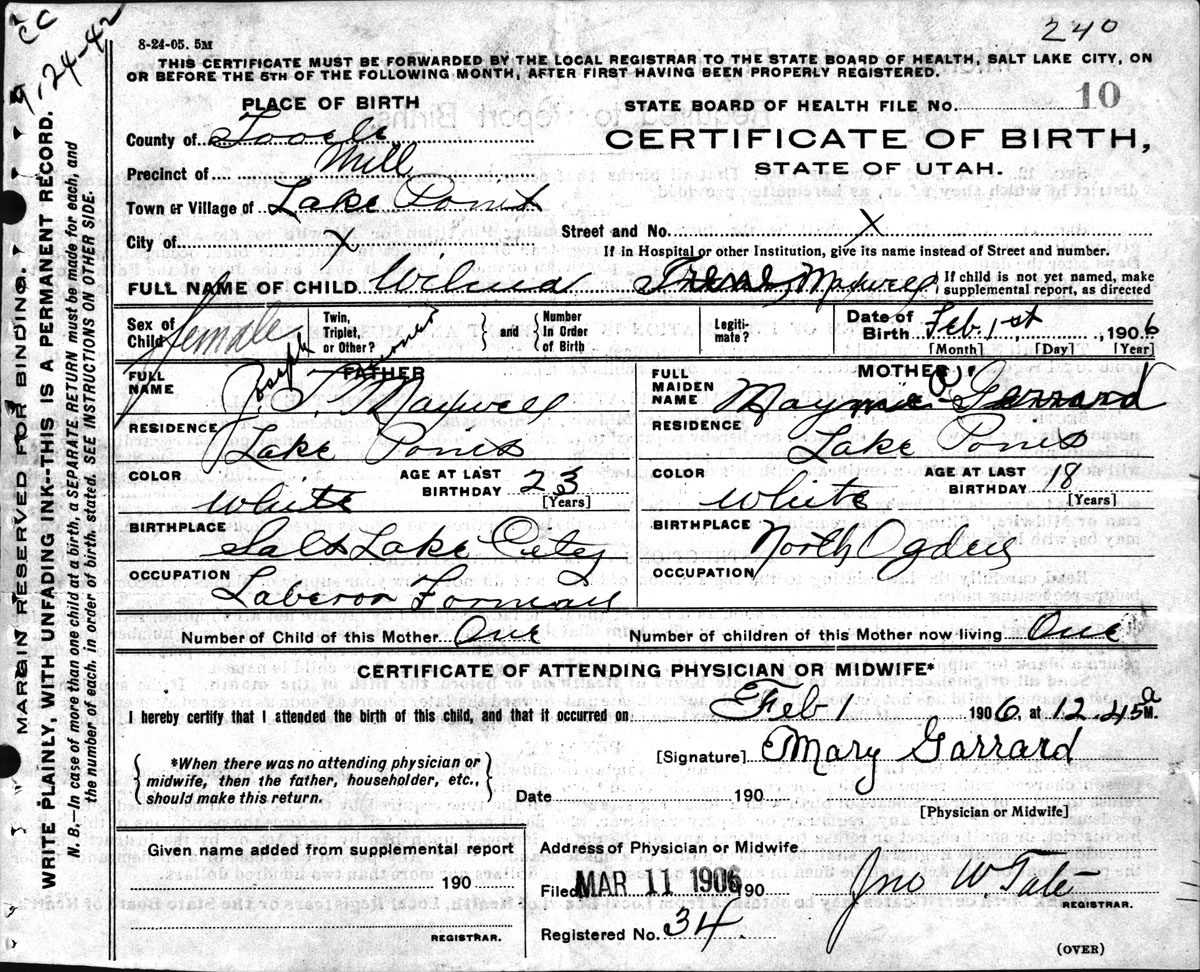 CC
9-24-42
240
8-24-05. 5M
THIS CERTIFICATE MUST BE FORWARDED BY THE LOCAL REGISTRAR TO THE STATE BOARD OF HEALTH, SALT LAKE CITY, ON
OR BEFORE THE 5TH OF THE FOLLOWING MONTH, AFTER FIRST HAVING BEEN PROPERLY REGISTERED.
PLACE OF BIRTH
STATE BOARD OF HEALTH FILE NO. 10
County of Tooele
CERTIFICATE OF BIRTH,
STATE OF UTAH.
Precinct of Mill
Town or Village of Lake Point
City of X Street and No. X
If in Hospital or other Institution, give its name instead of Street and number.
FULL NAME OF CHILD Wilma Maxwell
If child is not yet named, make
supplemental report, as directed
Sex of Child female
Twin, Triplet, or Other? and Number In Order of Birth
Legitimate?
Date of Birth Feb 1st, 1906
[Month] [Day] [Year]
FATHER
FULL NAME J. T. Maxwell
Joseph
RESIDENCE Lake Point
COLOR White AGE AT LAST BIRTHDAY 23 [Years]
BIRTHPLACE Salt Lake City
OCCUPATION Laberor Forman
MOTHER
FULL MAIDEN NAME Maymie Garrard
RESIDENCE Lake Point
COLOR White AGE AT LAST BIRTHDAY 18 [Years]
BIRTHPLACE North Ogden
OCCUPATION
Number of Child of this Mother One Number of children of this Mother now living One
CERTIFICATE OF ATTENDING PHYSICIAN OR MIDWIFE*
I hereby certify that I attended the birth of this child, and that it occurred on Feb 1 1906, at 12.45 a M.
*When there was no attending physician or
midwife, then the father, householder, etc.,
should make this return.
[Signature] Mary Garrard
Date 190
[Physician or Midwife]
Given name added from supplemental report
190
REGISTRAR.
Address of Physician or Midwife
Filed MAR 11 1906 190 Jno W. Tate
REGISTRAR.
Registered No. 34.
(OVER)
MARGIN RESERVED FOR BINDING.
WRITE PLAINLY, WITH UNFADING INK--THIS IS A PERMANENT RECORD.
N. B.—In case of more than one child at a birth, a SEPARATE RETURN must be made for each, and
the number of each, in order of birth, stated. SEE INSTRUCTIONS ON OTHER SIDE.